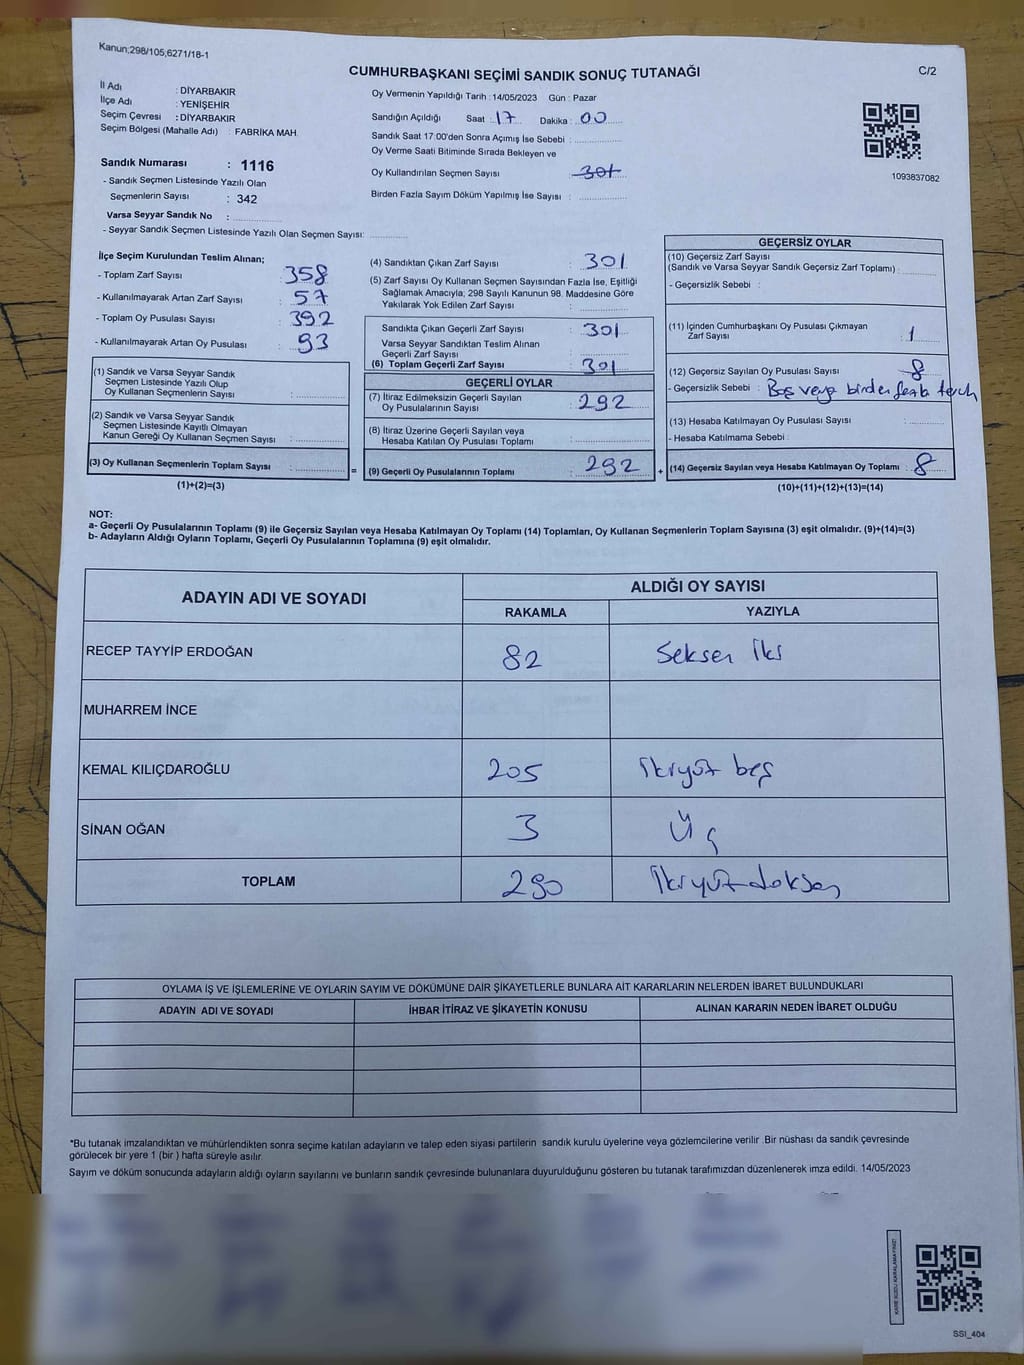 Kanun;298/105;6271/18-1
CUMHURBAŞKANI SEÇİMİ SANDIK SONUÇ TUTANAĞI
C/2
İl Adı : DİYARBAKIR
İlçe Adı : YENİŞEHİR
Seçim Çevresi : DİYARBAKIR
Seçim Bölgesi (Mahalle Adı) : FABRİKA MAH.
Sandık Numarası : 1116
- Sandık Seçmen Listesinde Yazılı Olan
Seçmenlerin Sayısı : 342
Varsa Seyyar Sandık No :
- Seyyar Sandık Seçmen Listesinde Yazılı Olan Seçmen Sayısı:
Oy Vermenin Yapıldığı Tarih : 14/05/2023 Gün : Pazar
Sandığın Açıldığı Saat : 17 Dakika : 00
Sandık Saat 17:00'den Sonra Açımış İse Sebebi :
Oy Verme Saati Bitiminde Sırada Bekleyen ve
Oy Kullandırılan Seçmen Sayısı : 301
Birden Fazla Sayım Döküm Yapılmış İse Sayısı :
1093837082
İlçe Seçim Kurulundan Teslim Alınan;
- Toplam Zarf Sayısı : 358
- Kullanılmayarak Artan Zarf Sayısı : 57
- Toplam Oy Pusulası Sayısı : 392
- Kullanılmayarak Artan Oy Pusulası : 93
(1) Sandık ve Varsa Seyyar Sandık
Seçmen Listesinde Yazılı Olup
Oy Kullanan Seçmenlerin Sayısı :
(2) Sandık ve Varsa Seyyar Sandık
Seçmen Listesinde Kayıtlı Olmayan
Kanun Gereği Oy Kullanan Seçmen Sayısı :
(3) Oy Kullanan Seçmenlerin Toplam Sayısı :
(1)+(2)=(3)
=
(4) Sandıktan Çıkan Zarf Sayısı : 301
(5) Zarf Sayısı Oy Kullanan Seçmen Sayısından Fazla İse, Eşitliği
Sağlamak Amacıyla, 298 Sayılı Kanunun 98. Maddesine Göre
Yakılarak Yok Edilen Zarf Sayısı :
Sandıkta Çıkan Geçerli Zarf Sayısı : 301
Varsa Seyyar Sandıktan Teslim Alınan
Geçerli Zarf Sayısı :
(6) Toplam Geçerli Zarf Sayısı : 301
GEÇERLİ OYLAR
(7) İtiraz Edilmeksizin Geçerli Sayılan
Oy Pusulalarının Sayısı : 292
(8) İtiraz Üzerine Geçerli Sayılan veya
Hesaba Katılan Oy Pusulası Toplamı :
(9) Geçerli Oy Pusulalarının Toplamı : 292
+
GEÇERSİZ OYLAR
(10) Geçersiz Zarf Sayısı
(Sandık ve Varsa Seyyar Sandık Geçersiz Zarf Toplamı) :
- Geçersizlik Sebebi :
(11) İçinden Cumhurbaşkanı Oy Pusulası Çıkmayan
Zarf Sayısı : 1
(12) Geçersiz Sayılan Oy Pusulası Sayısı : 8
- Geçersizlik Sebebi : Boş veya birden fazla tercih
(13) Hesaba Katılmayan Oy Pusulası Sayısı :
- Hesaba Katılmama Sebebi :
(14) Geçersiz Sayılan veya Hesaba Katılmayan Oy Toplamı : 8
(10)+(11)+(12)+(13)=(14)
NOT:
a- Geçerli Oy Pusulalarının Toplamı (9) ile Geçersiz Sayılan veya Hesaba Katılmayan Oy Toplamı (14) Toplamları, Oy Kullanan Seçmenlerin Toplam Sayısına (3) eşit olmalıdır. (9)+(14)=(3)
b- Adayların Aldığı Oyların Toplamı, Geçerli Oy Pusulalarının Toplamına (9) eşit olmalıdır.
ADAYIN ADI VE SOYADI
ALDIĞI OY SAYISI
RAKAMLA YAZIYLA
RECEP TAYYİP ERDOĞAN 82 Seksen İki
MUHARREM İNCE
KEMAL KILIÇDAROĞLU 205 İkiyüz beş
SİNAN OĞAN 3 Üç
TOPLAM 290 İkiyüz doksan
OYLAMA İŞ VE İŞLEMLERİNE VE OYLARIN SAYIM VE DÖKÜMÜNE DAİR ŞİKAYETLERLE BUNLARA AİT KARARLARIN NELERDEN İBARET BULUNDUKLARI
ADAYIN ADI VE SOYADI İHBAR İTİRAZ VE ŞİKAYETİN KONUSU ALINAN KARARIN NEDEN İBARET OLDUĞU
*Bu tutanak imzalandıktan ve mühürlendikten sonra seçime katılan adayların ve talep eden siyasi partilerin sandık kurulu üyelerine veya gözlemcilerine verilir. Bir nüshası da sandık çevresinde
görülecek bir yere 1 (bir ) hafta süreyle asılır.
Sayım ve döküm sonucunda adayların aldığı oyların sayılarını ve bunların sandık çevresinde bulunanlara duyurulduğunu gösteren bu tutanak tarafımızdan düzenlenerek imza edildi. 14/05/2023
SSI_404